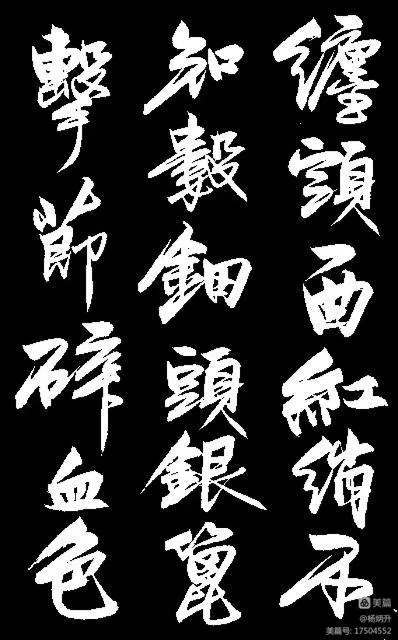 纏頭一曲紅綃不
知數鈿頭銀篦
擊節碎血色
美篇
@杨炳升
美篇号: 17504552